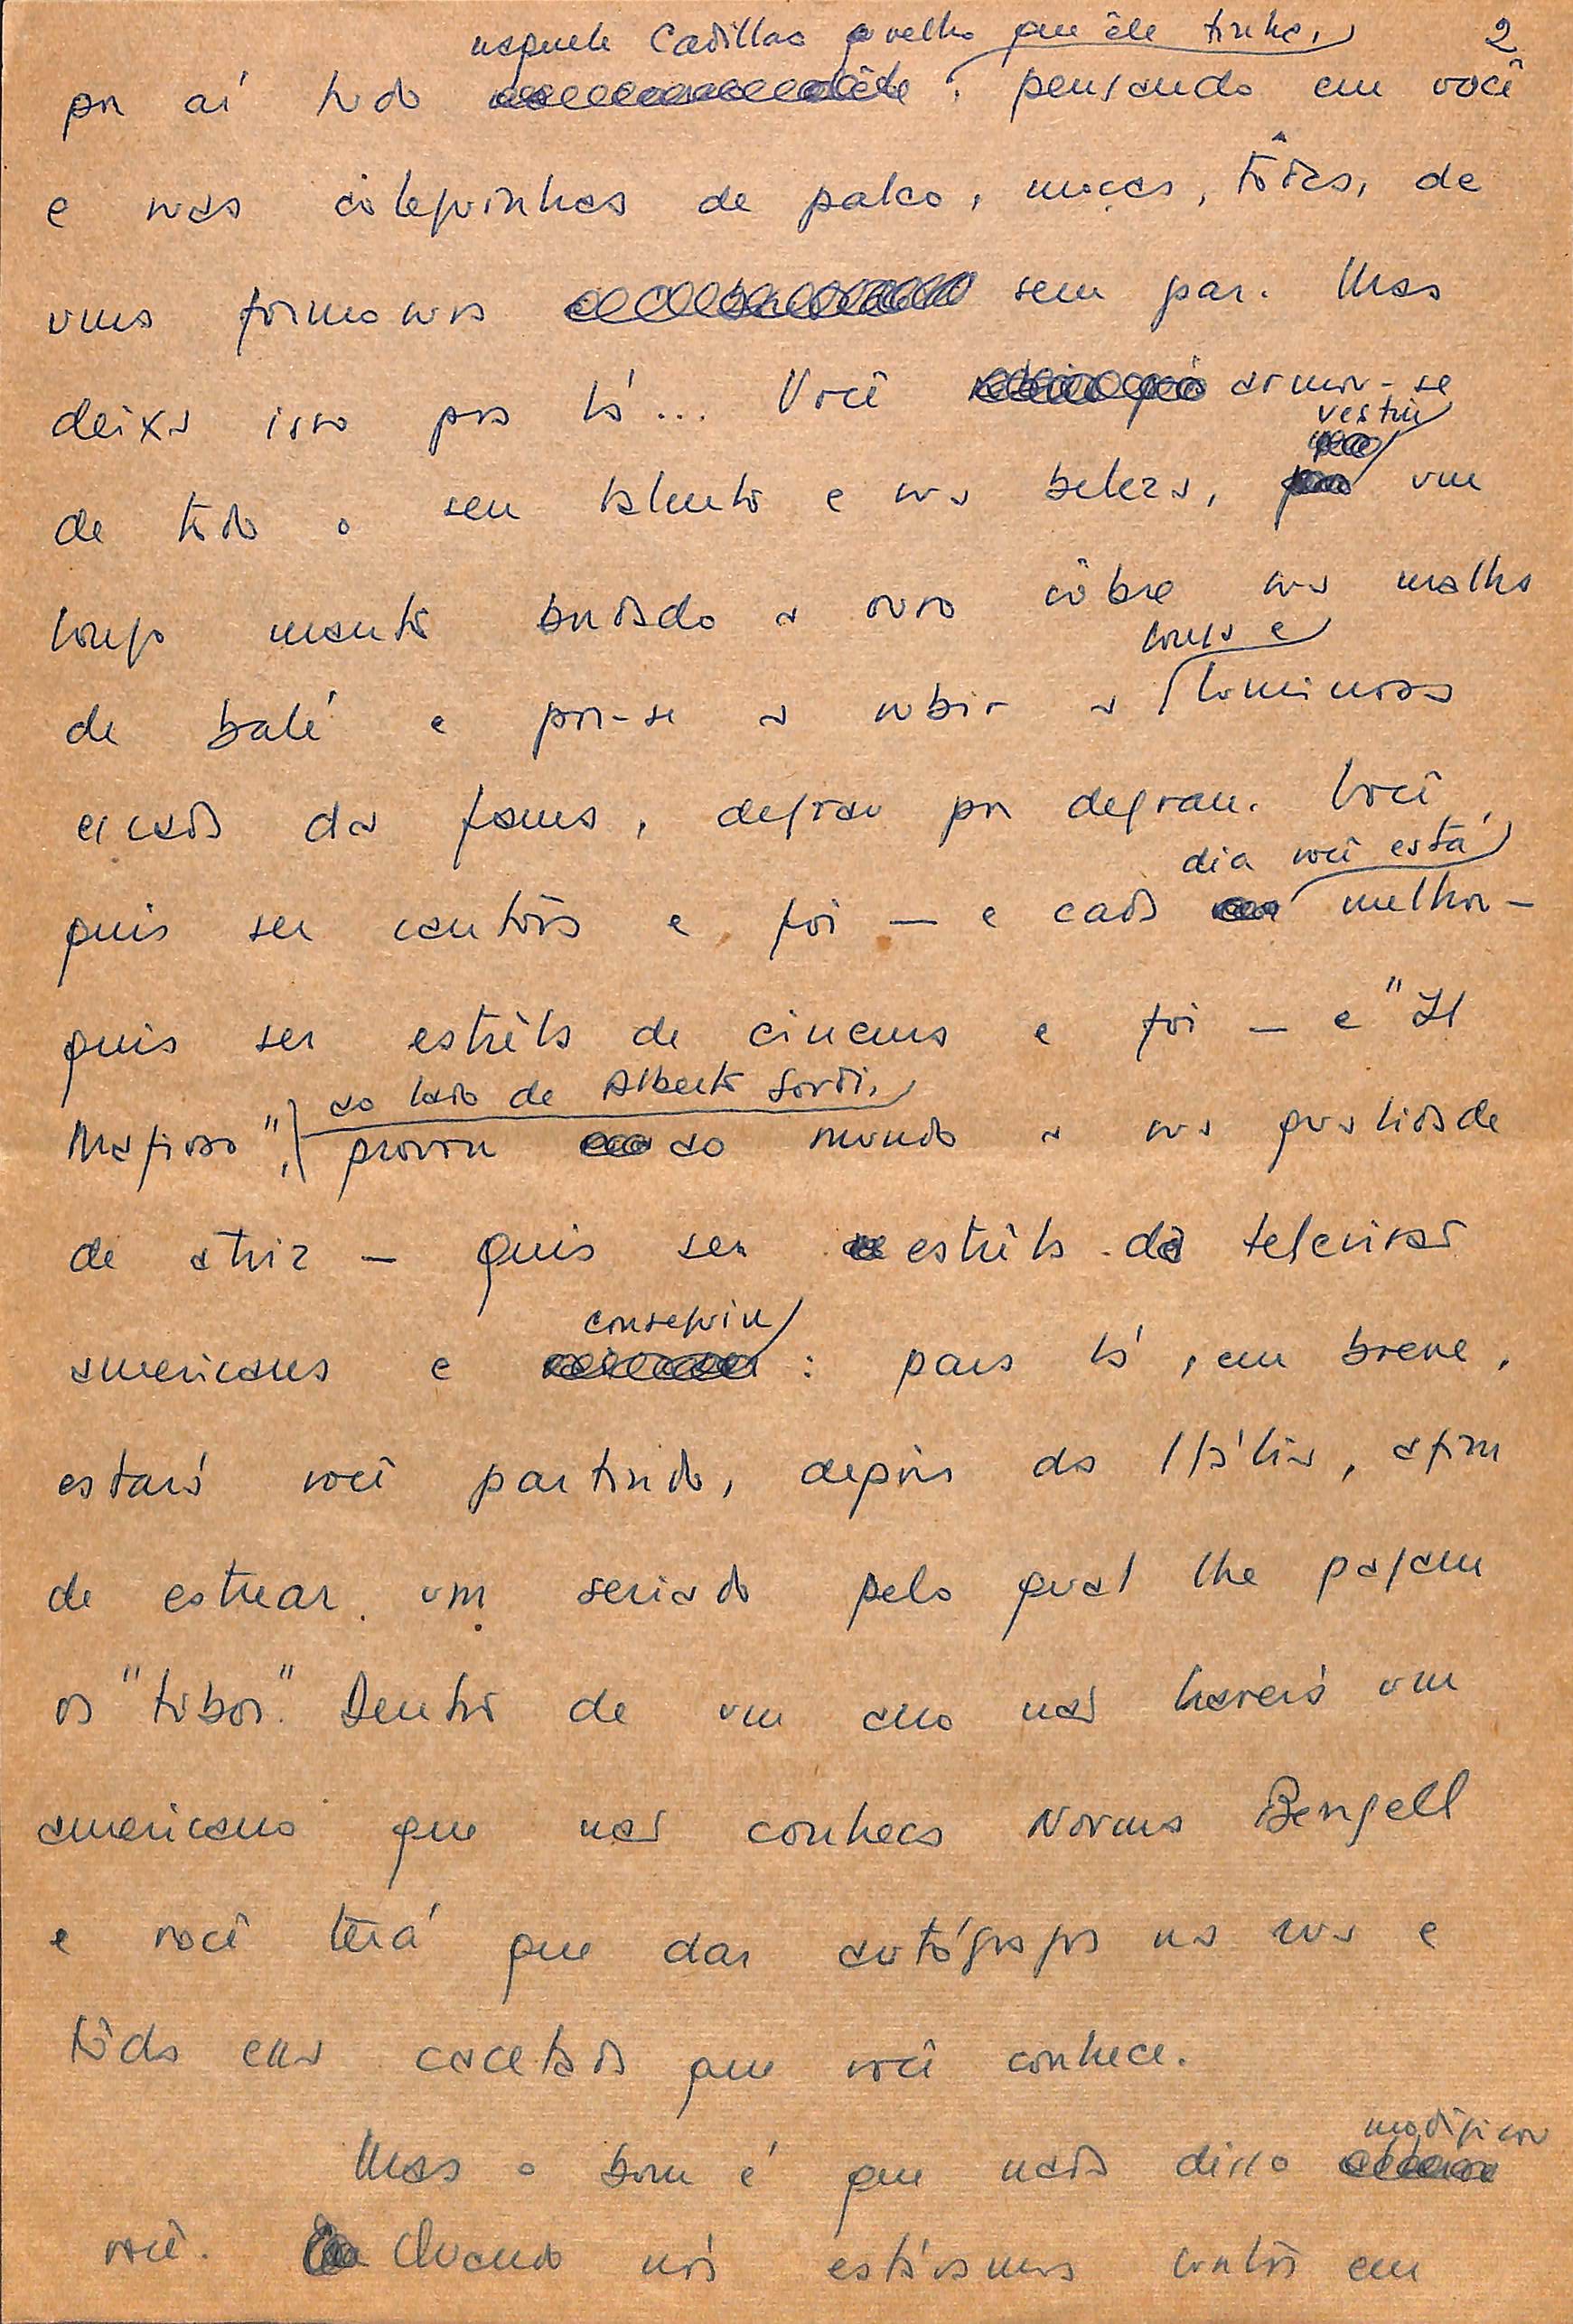 naquele Cadillac velho que êle tinha, 2
por aí tudo pensando em você
e suas coleguinhas de palco, moças, tôdas, de
uma formosura sem par. Mas
deixa isso pra lá... Você armou-se
vestiu
de todo o seu talento e sua beleza, um
longo manto bordado a ouro sôbre sua malha
longa e
de balé e pôs-se a subir a luminosa
escada da fama, degrau por degrau. Você
dia você está
quis ser cantôra e foi — e cada melhor —
quis ser estrêla de cinema e foi — e "Il
ao lado de Alberto Sordi,
Mafioso", provou ao mundo a sua qualidade
de atriz — quis ser estrêla da televisão
conseguiu
americana e : para lá, em breve,
estará você partindo, depois da Itália, afim
de estrear um seriado pelo qual lhe pagam
os "tubos". Dentro de um ano não haverá um
americano que não conheça Norma Bengell
e você terá que dar autógrafos na rua e
tôda essa cacetada que você conhece.
modificou
Mas o bom é que nada disso
você. Quando nós estávamos juntos em